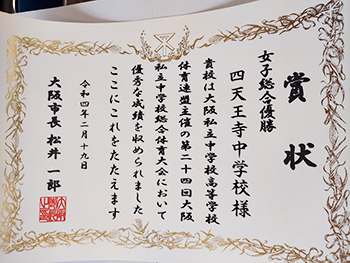 賞状
女子総合優勝
四天王寺中学校様
貴校は大阪私立中学校高等学校
体育連盟主催の第二十四回大阪
私立中学校総合体育大会において
優秀な成績を収められました
ここにこれをたたえます
令和四年二月十九日
大阪市長 松井一郎